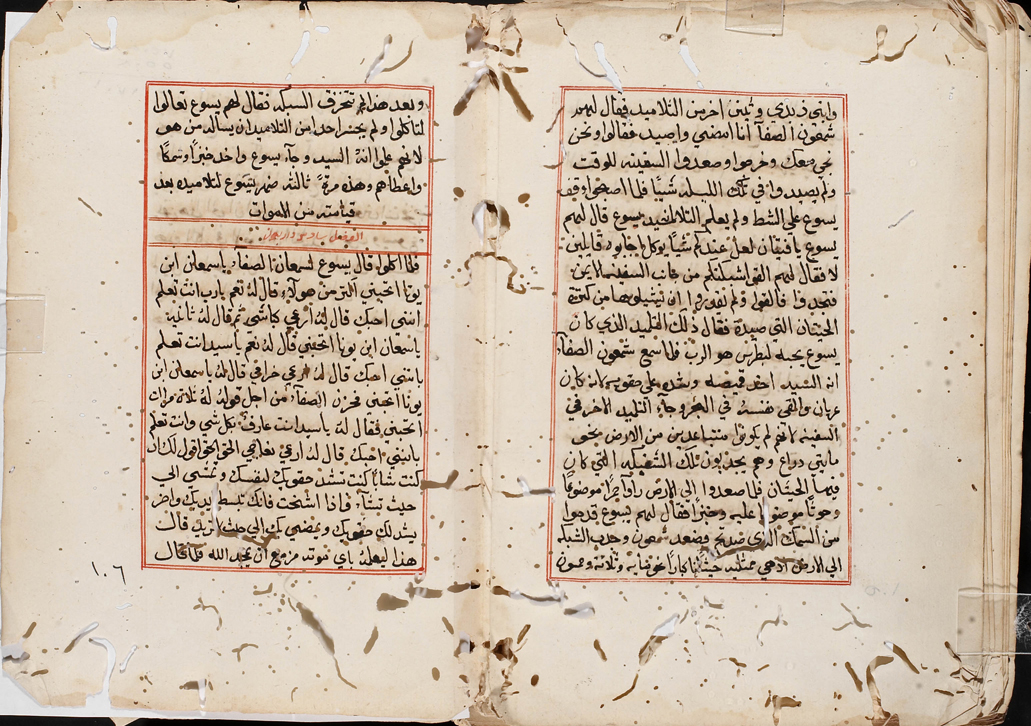 وابني زبدى وثنين اخرين من التلاميد فقال لهم
شمعون الصفآ انا امضي واصيد فقالوا ونحن
نجي معك وخرجوا وصعدوا السفينه للوقت
ولم يصيدوا في تلك الليله شيًا فلما اصبحوا وقف
يسوع علي الشط ولم يعلم التلاميد يسوع قال لهم
يسوع يا فتيان لعل عندكم شيًا يوكل اجابوه قايلين
لا فقال لهم القوا شبكتكم من جانب السفينه الايمن
فتجدوا فالقوا ولم يقدروا ان يشيلوها من كترة
الحيتان التي صيدة فقال ذلك التلميد الذي كان
يسوع يحبه لبطرس هو الرب فلما سمع شمعون الصفآ
انه السيد اخد قميصه وشده علي حقويه لانه كان
عريان والقي نفسه في البحر وجآء التلاميد الاخر في
السفينه لانهم لم يكونوا متباعدين من الارض بنحو
مايتي دراع وهم يجدبون تلك الشبكه التي كان
فيها الحيتان فلما صعدوا الي الارض راوا جمرًا موضوعًا
وحوتًا موضوعًا عليه وخبزًا فقال لهم يسوع قدموا
من السمك الذي صدتم فصعد شمعون وجدب الشبكه
الي الارض وهي ممتليه حيتانًا كبارًا مايه وثلاثه وخمسون
وبعد هذا لم تتخرق الشبكه فقال لهم يسوع تعالوا
لتاكلوا ولم يجسر احد من التلاميد ان يساله من هو
لانهم علموا انهُ السيد وجآء يسوع واخد خبزًا وسمكًا
واعطاهم وهذه مرةً ثالثه ظهر يسوع لتلاميده بعد
قيامته من الاموات
الفصل سادس واربعون
فلما اكلوا قال يسوع لسمعان الصفآء ياسمعان ابن
يونا اتحبني اكتر من هولآء قال لهُ نعم يارب انت تعلم
انني احبك قال لهُ ارعي كباشي تم قال لهُ ثانية
ياسمعان ابن يونا اتحبني قال لهُ نعم ياسيد انت تعلم
بانني احبك قال لهُ ارعي خرافي قال لهُ ياسمعان ابن
يونا اتحبني فحزن الصفآء من اجل قوله لهُ ثلاتة مرات
اتحبني فقال لهُ ياسيد انت عارف بكل شي وانت تعلم
بانني احبك قال لهُ ارعي نعاجي الحق الحق اقول لك اد
كنت شابًا كنت تشد حقويك لنفسك وتمشي الي
حيث تشآء فاذا اشخت فانك تبسط يديك واخر
يشد لك حقويك ويمضي بك الي حيث لا تريد قال
هذا ليعلمهُ باي موتد مزمع ان يمجد الله فلما قال
١٠٦